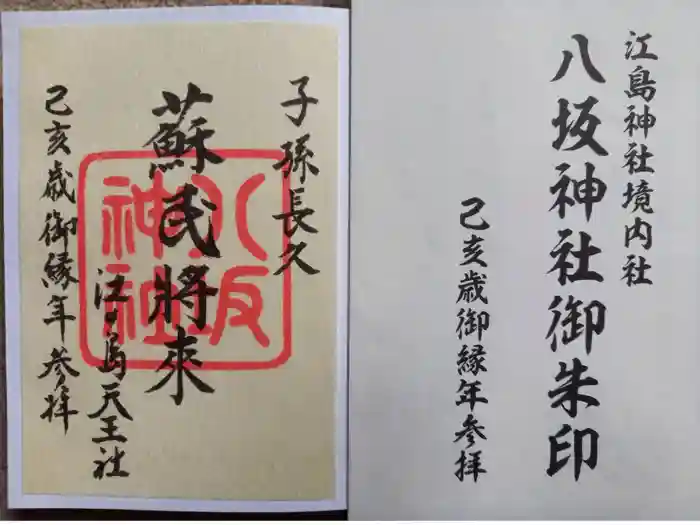 子孫長久
蘇民將來
江島天王社
己亥歳御縁年参拝
八坂神社
江島神社境内社
八坂神社御朱印
己亥歳御縁年参拝